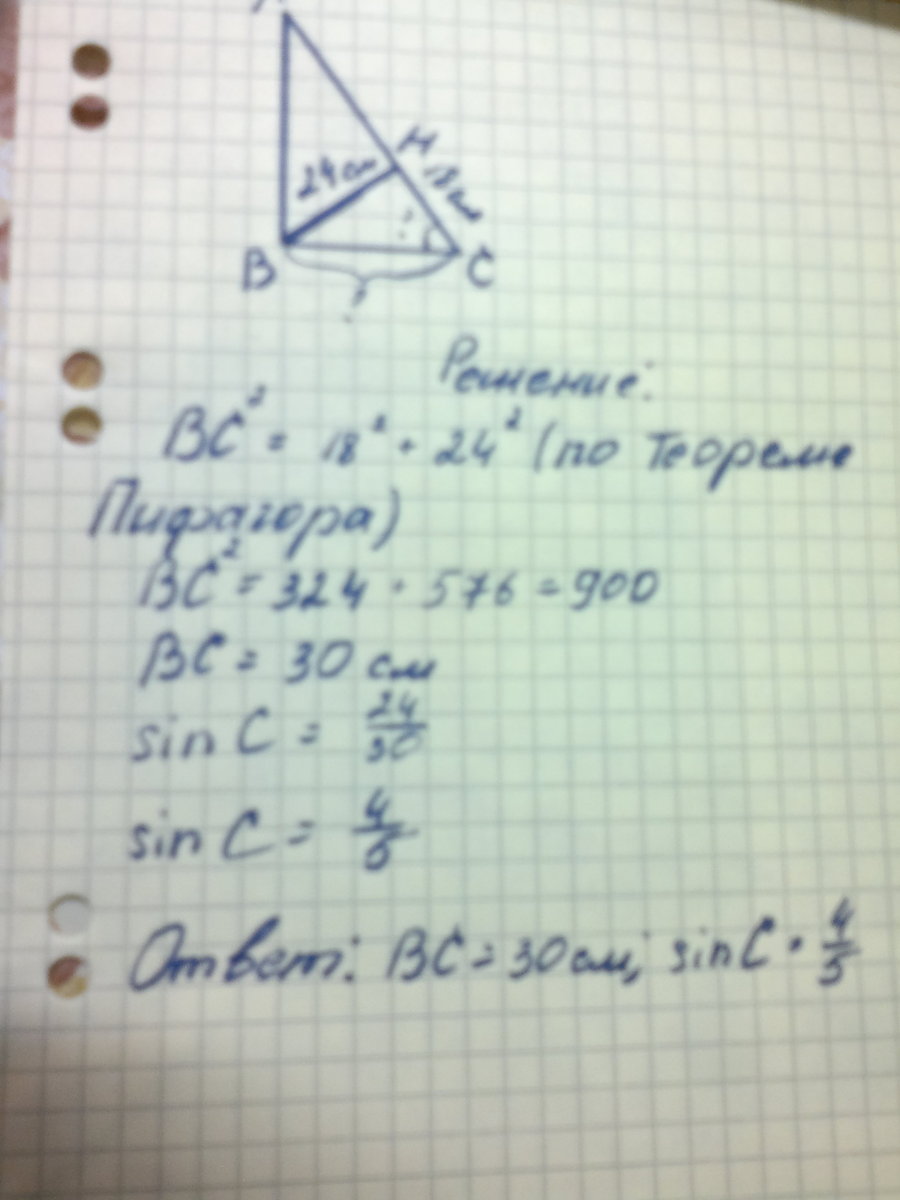 H
24 см
18 см
?
B
C
?
Решение:
BC² = 18² + 24² (по Теореме
Пифагора)
BC² = 324 + 576 = 900
BC = 30 см
sin C = 24/30
sin C = 4/5
Ответ: BC = 30 см; sin C = 4/5